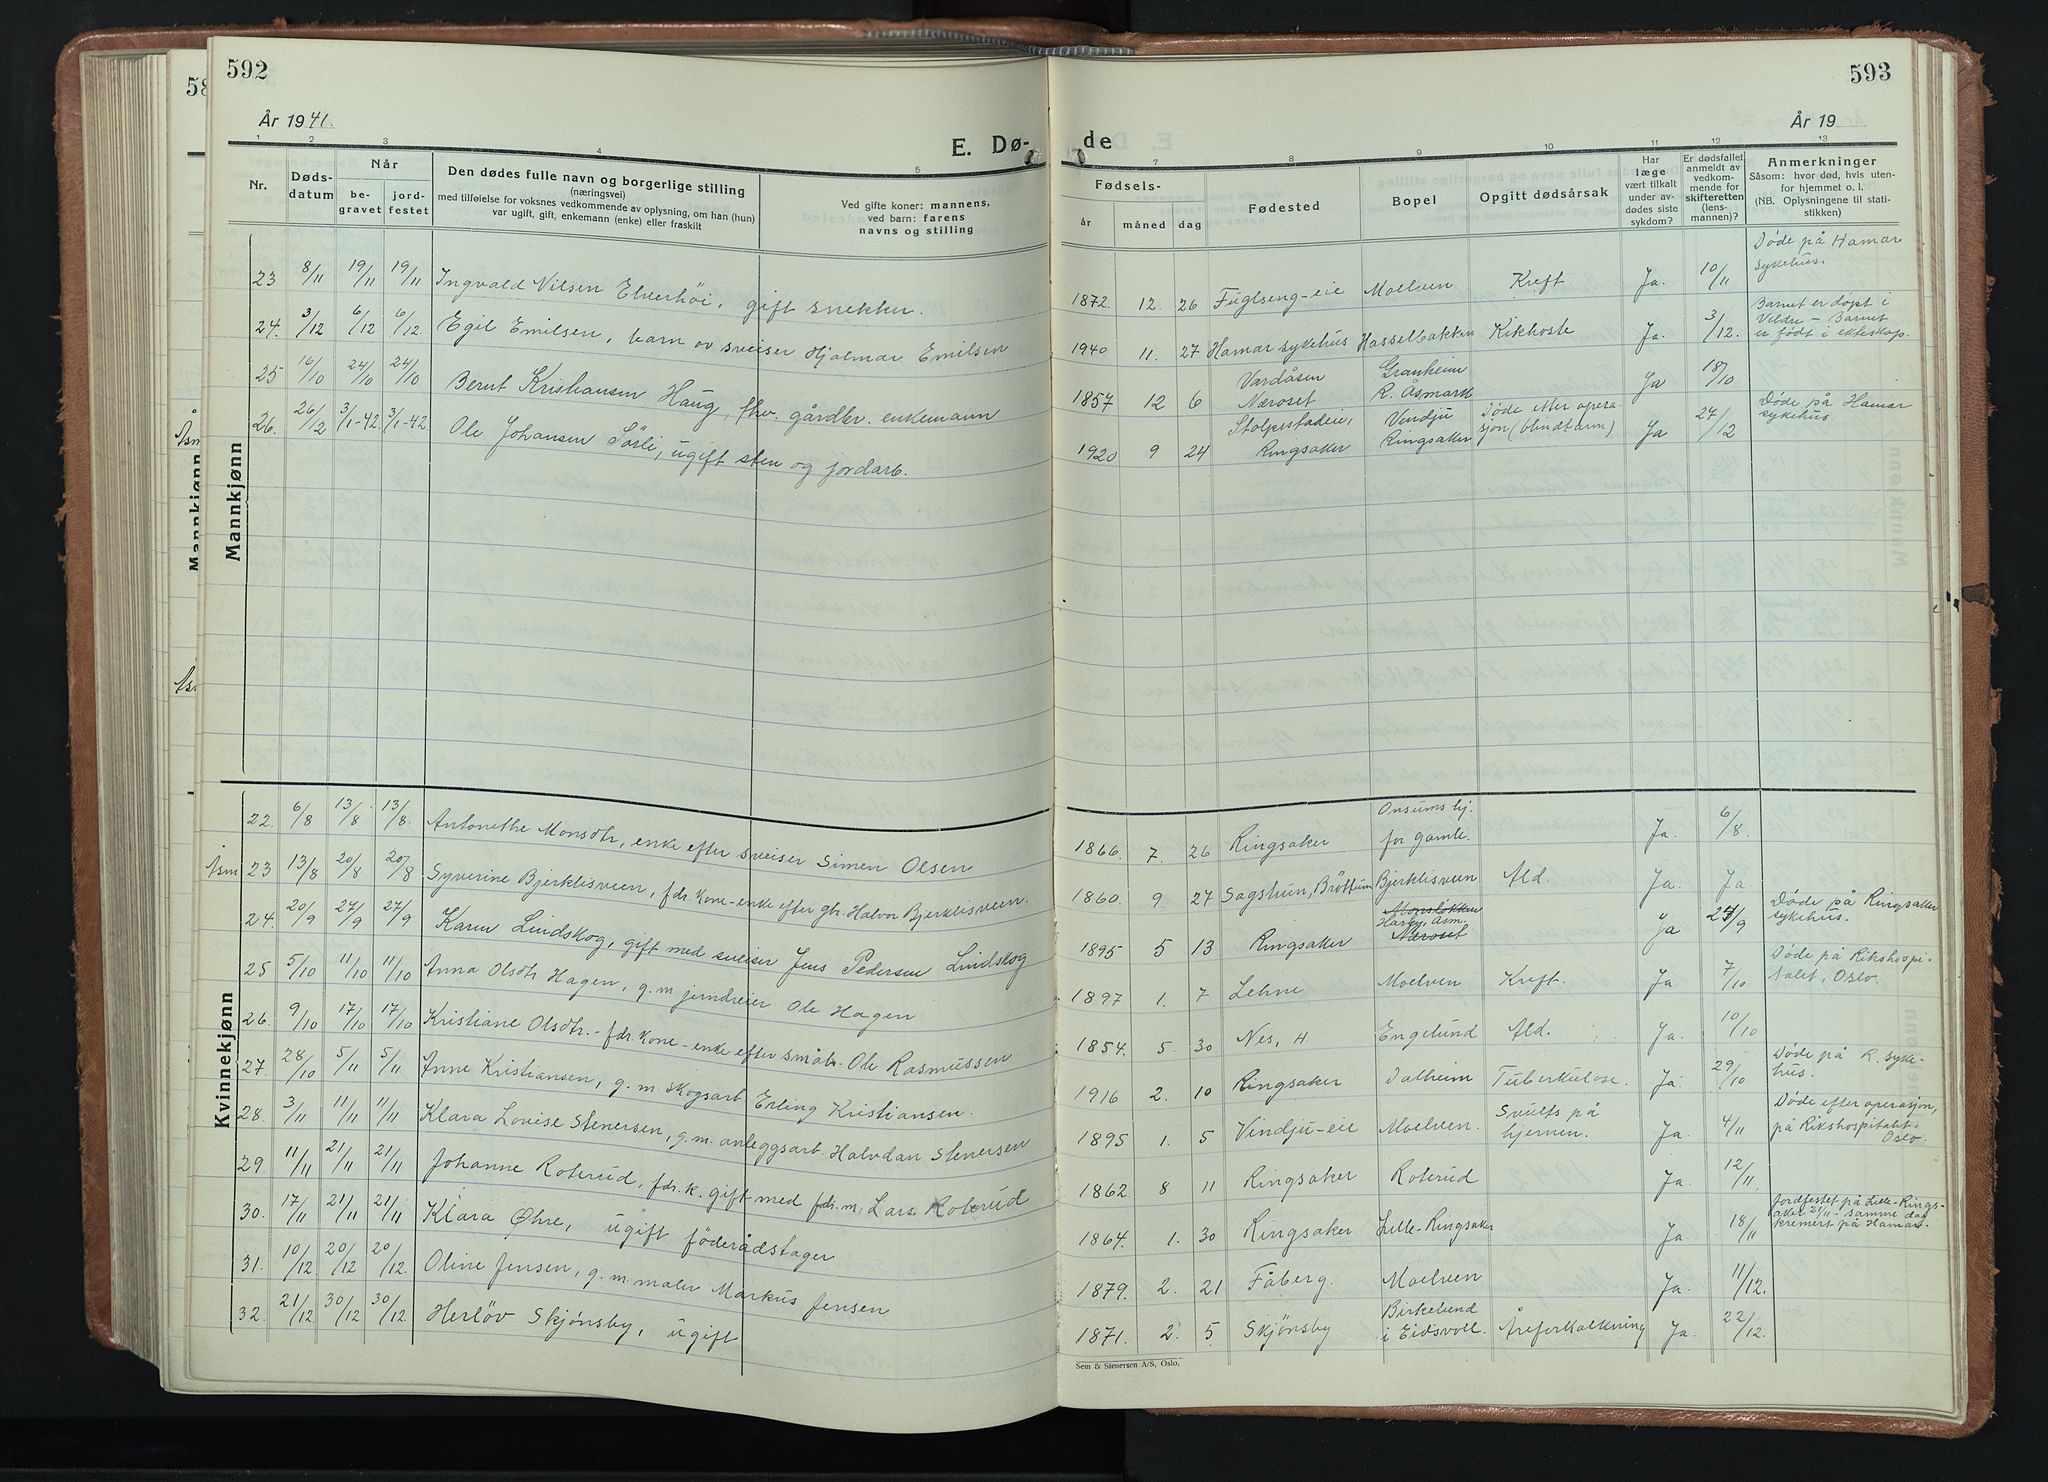 592
År 1941.
E. Dø-
1 2 3 4 5
Nr.
Døds-
datum
Når
be-
gravet
jord-
festet
Den dødes fulle navn og borgerlige stilling
(næringsvei)
med tilføielse for voksnes vedkommende av oplysning, om han (hun)
var ugift, gift, enkemann (enke) eller fraskilt
Ved gifte koner: mannens,
ved barn: farens
navns og stilling
Mannkjønn
23 8/11 19/11 19/11 Ingvald Nilsen Elverhöi, gift snekker.
24. 3/12 6/12 6/12 Egil Emilsen, barn av sveiser Hjalmar Emilsen
25 16/10 24/10 24/10 Bernt Kristiansen Haug, fhv. gårdbr. enkemann
26. 26/12 3/1-42 3/1-42 Ole Johansen Sörli, ugift sten og jordarb.
Kvinnekjønn
22. 6/8 13/8 13/8. Antonethe Monsdtr, enke efter sveiser Simen Olsen
Åsm 23 13/8 20/8 20/8 Syverine Bjerklisveen, fdr. kone - enke efter gbr. Halvor Bjerklisveen.
24. 20/9 27/9 27/9 Karen Lindskog, gift med sveiser Jens Pedersen Lindskog
25 5/10 11/10 11/10 Anna Olsdtr Hagen, g. m jerndreier Ole Hagen
26. 9/10 17/10 17/10 Kristiane Olsdtr. - fdr. kone - enke efter småbr. Ole Rasmussen
27. 28/10 5/11 5/11 Anne Kristiansen, g. m. skogsarb. Erling Kristiansen.
28. 3/11 11/11 11/11 Klara Lovise Stenersen, g. m. anleggsarb. Halvdan Stenersen
29. 11/11 21/11 21/11 Johanne Roterud, fdr. k. gift med fdr. m. Lars Roterud
30. 17/11 21/11 21/11 Klara Øhre, ugift föderådstager
31. 10/12 20/12 20/12. Oline Jensen, g. m. maler Markus Jensen
32. 21/12 30/12 30/12. Herlöv Skjönsby, ugift
593
År 19
de
7 8 9 10 11 12 13
Fødsels-
år måned dag
Fødested
Bopel
Opgitt dødsårsak
Har
læge
vært tilkalt
under av-
dødes siste
sykdom?
Er dødsfallet
anmeldt av
vedkom-
mende for
skifteretten
(lens-
mannen)?
Anmerkninger
Såsom: hvor død, hvis uten-
for hjemmet o. l.
(NB. Oplysningene til stati-
stikken)
1872. 12. 26 Fuglseng-eie Moelven Kreft Ja. 10/11 Døde på Hamar
sykehus.
1940 11. 27 Hamar sykehus Hasselbakken Kikhoste Ja. 3/12. Barnet er døpt i
Veldre - Barnet
er født i ekteskap.
1857 12 6 Vardåsen
Næroset Granheim
R. Åsmark Ja 18/10
1920 9 24 Stolpestadeie,
Ringsaker Vendju
Ringsaker Døde efter opera
sjon (blindtarm) Ja 27/12 Døde på Hamar
sykehus
1866. 7. 26 Ringsaker Onsums hj.
for gamle. Ja. 6/8.
1860. 9. 27 Sagstuen, Bröttum Bjerklisveen Ald. Ja. Ja
1895 5 13 Ringsaker Monsløkken
Harby, Åsm.
Næroset Ja 27/9 Døde på Ringsaker
sykehus.
1897 1. 7 Lehne Moelven Kreft. Ja 7/10. Døde på Rikshospi-
talet, Oslo.
1854. 5. 30 Nes, H Engelund Ald. Ja. 10/10
1916 2. 10 Ringsaker Dalheim Tuberkulose. Ja. 29/10 Døde på R. syke-
hus.
1895 1. 5 Vindju-eie Moelven. Svulst på
hjernen. Ja. 4/11 Døde efter operasjon,
på Rikshospitalet,
Oslo.
1862. 8 11 Ringsaker Roterud Ja 12/11.
1864. 1. 30 Ringsaker Lille-Ringsaker Ja 18/11 Jordfestet på Lille-Rings-
aker 21/11 - samme dag
kremert på Hamar.
1879. 2. 21 Fåberg. Moelven Ja. 11/12.
1871. 2. 5 Skjönsby Birkelund
i Eidsvoll. Åreforkalkning Ja. 22/12.
Sem & Stenersen A/S, Oslo.